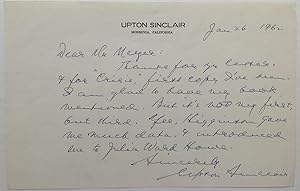 UPTON SINCLAIR
MONROVIA, CALIFORNIA
Jan 26 1962
Dear Mr Meyer:
Thanks for yr letter
& for "Crisis," first copy I've seen.
I am glad to have my book
mentioned. But it's not my first,
but third. Yes, Higginson gave
me much data, & introduced
me to Julia Ward Howe.
Sincerely
Upton Sinclair